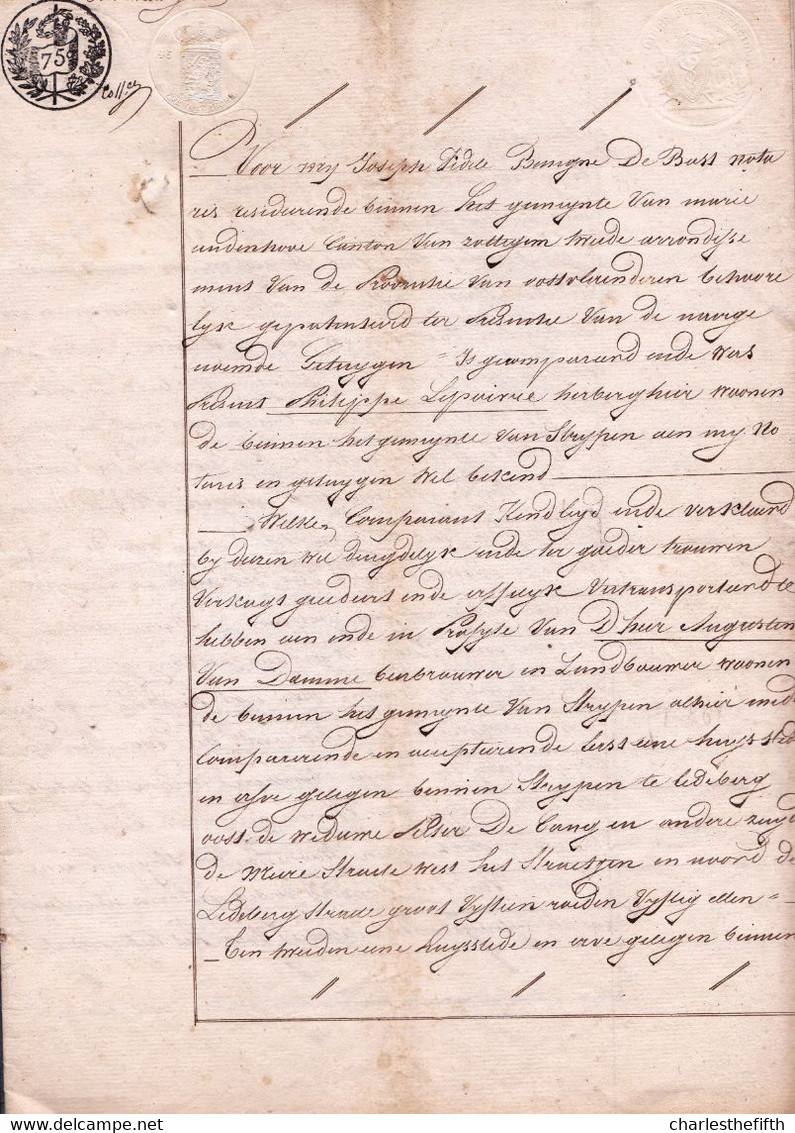 75
Coll:
Voor my Joseph Fidele Benigne De Buss nota
ris residerende binnen het gemeynte Van marie
audenhove Canton Van zotteghem tweede arrondisse
ment Van de Provintie Van oostvlaenderen behoore
lyk gepatenteerd ter Presentie Van de naerge
noemde Getuygen = Is gecompareerd ende was
Present Philippe Lepoivre herberghier woonen
de binnen het gemeynte Van Strypen aen my No
taris en getuygen wel bekend
Welken Comparant Kend lyd ende verklaerd
by dezen wel deugdelyk ende ter goeder trouwen
Verkogt gecedeert ende erffelyk Vertransporteerd te
hebben aen ende in Profyte Van D'heer Augusten
Van Damme bierbrouwer en Landbouwer woonen
de binnen het gemeynte Van Strypen alhier mede
Comparerende en accepteerende Eerst eene huysstede
en erfve gelegen binnen Strypen te Ledeberg
oost de Weduwe Pieter De Cang en andere zuyd
de Meire Straete west het Straetjen en noord de
Ledeberg Straete groot Vyfthien roeden Vyftig ellen =
Ten tweeden eene huysstede en erve gelegen binnen
charlesthefifth
delcampe.net